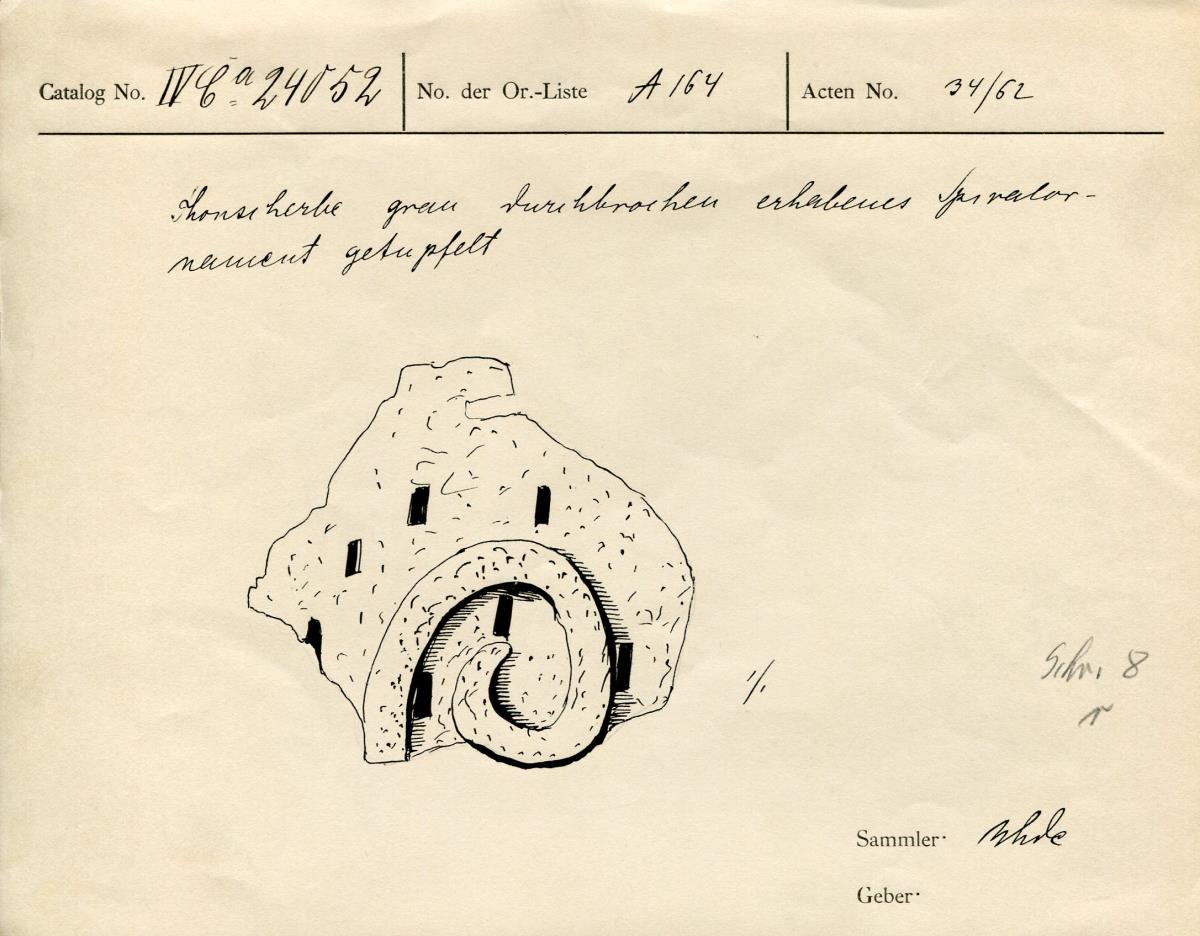 Catalog No. IV Ca 24052 No. der Or.-Liste A 164 Acten No. 34/62
Thonscherbe grau durchbrochen erhabenes Spiralor-
nament getupfelt
1/1
Schr. 8
Sammler: Uhde
Geber: